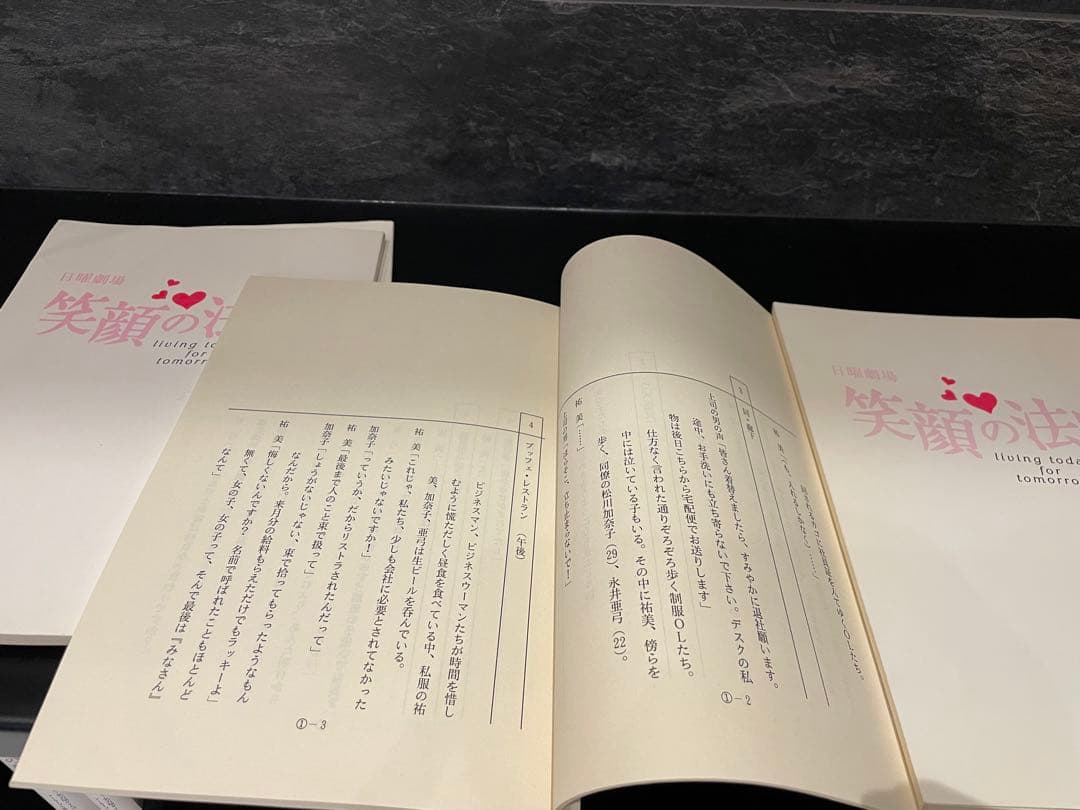 日曜劇場
笑顔の法
living to
for
tomorr
日曜劇場
笑顔の法
living toda
for
tomor
3
同・廊下
上司の男の声「皆さん着替えましたら、すみやかに退社願います。
途中、お手洗いにも立ち寄らないで下さい。デスクの私
物は後日こちらから宅配便でお送りします」
仕方なく言われた通りぞろぞろ歩く制服OLたち。
中には泣いている子もいる。その中に祐美、傍らを
歩く、同僚の松川加奈子（29）、永井亜弓（22）。
祐　美「……」
①−2
4
ブッフェ・レストラン（午後）
ビジネスマン、ビジネスウーマンたちが時間を惜し
むように慌ただしく昼食を食べている中、私服の祐
美、加奈子、亜弓は生ビールを呑んでいる。
祐　美「これじゃ、私たち、少しも会社に必要とされてなかった
みたいじゃないですか！」
加奈子「っていうか、だからリストラされたんだって」
祐　美「最後まで人のこと束で扱って」
加奈子「しょうがないじゃない、束で拾ってもらったようなもん
なんだから。来月分の給料もらえただけでもラッキーよ」
祐　美「悔しくないんですか？　名前で呼ばれたこともほとんど
無くて、女の子、女の子って、そんで最後は『みなさん』
なんて」
①−3